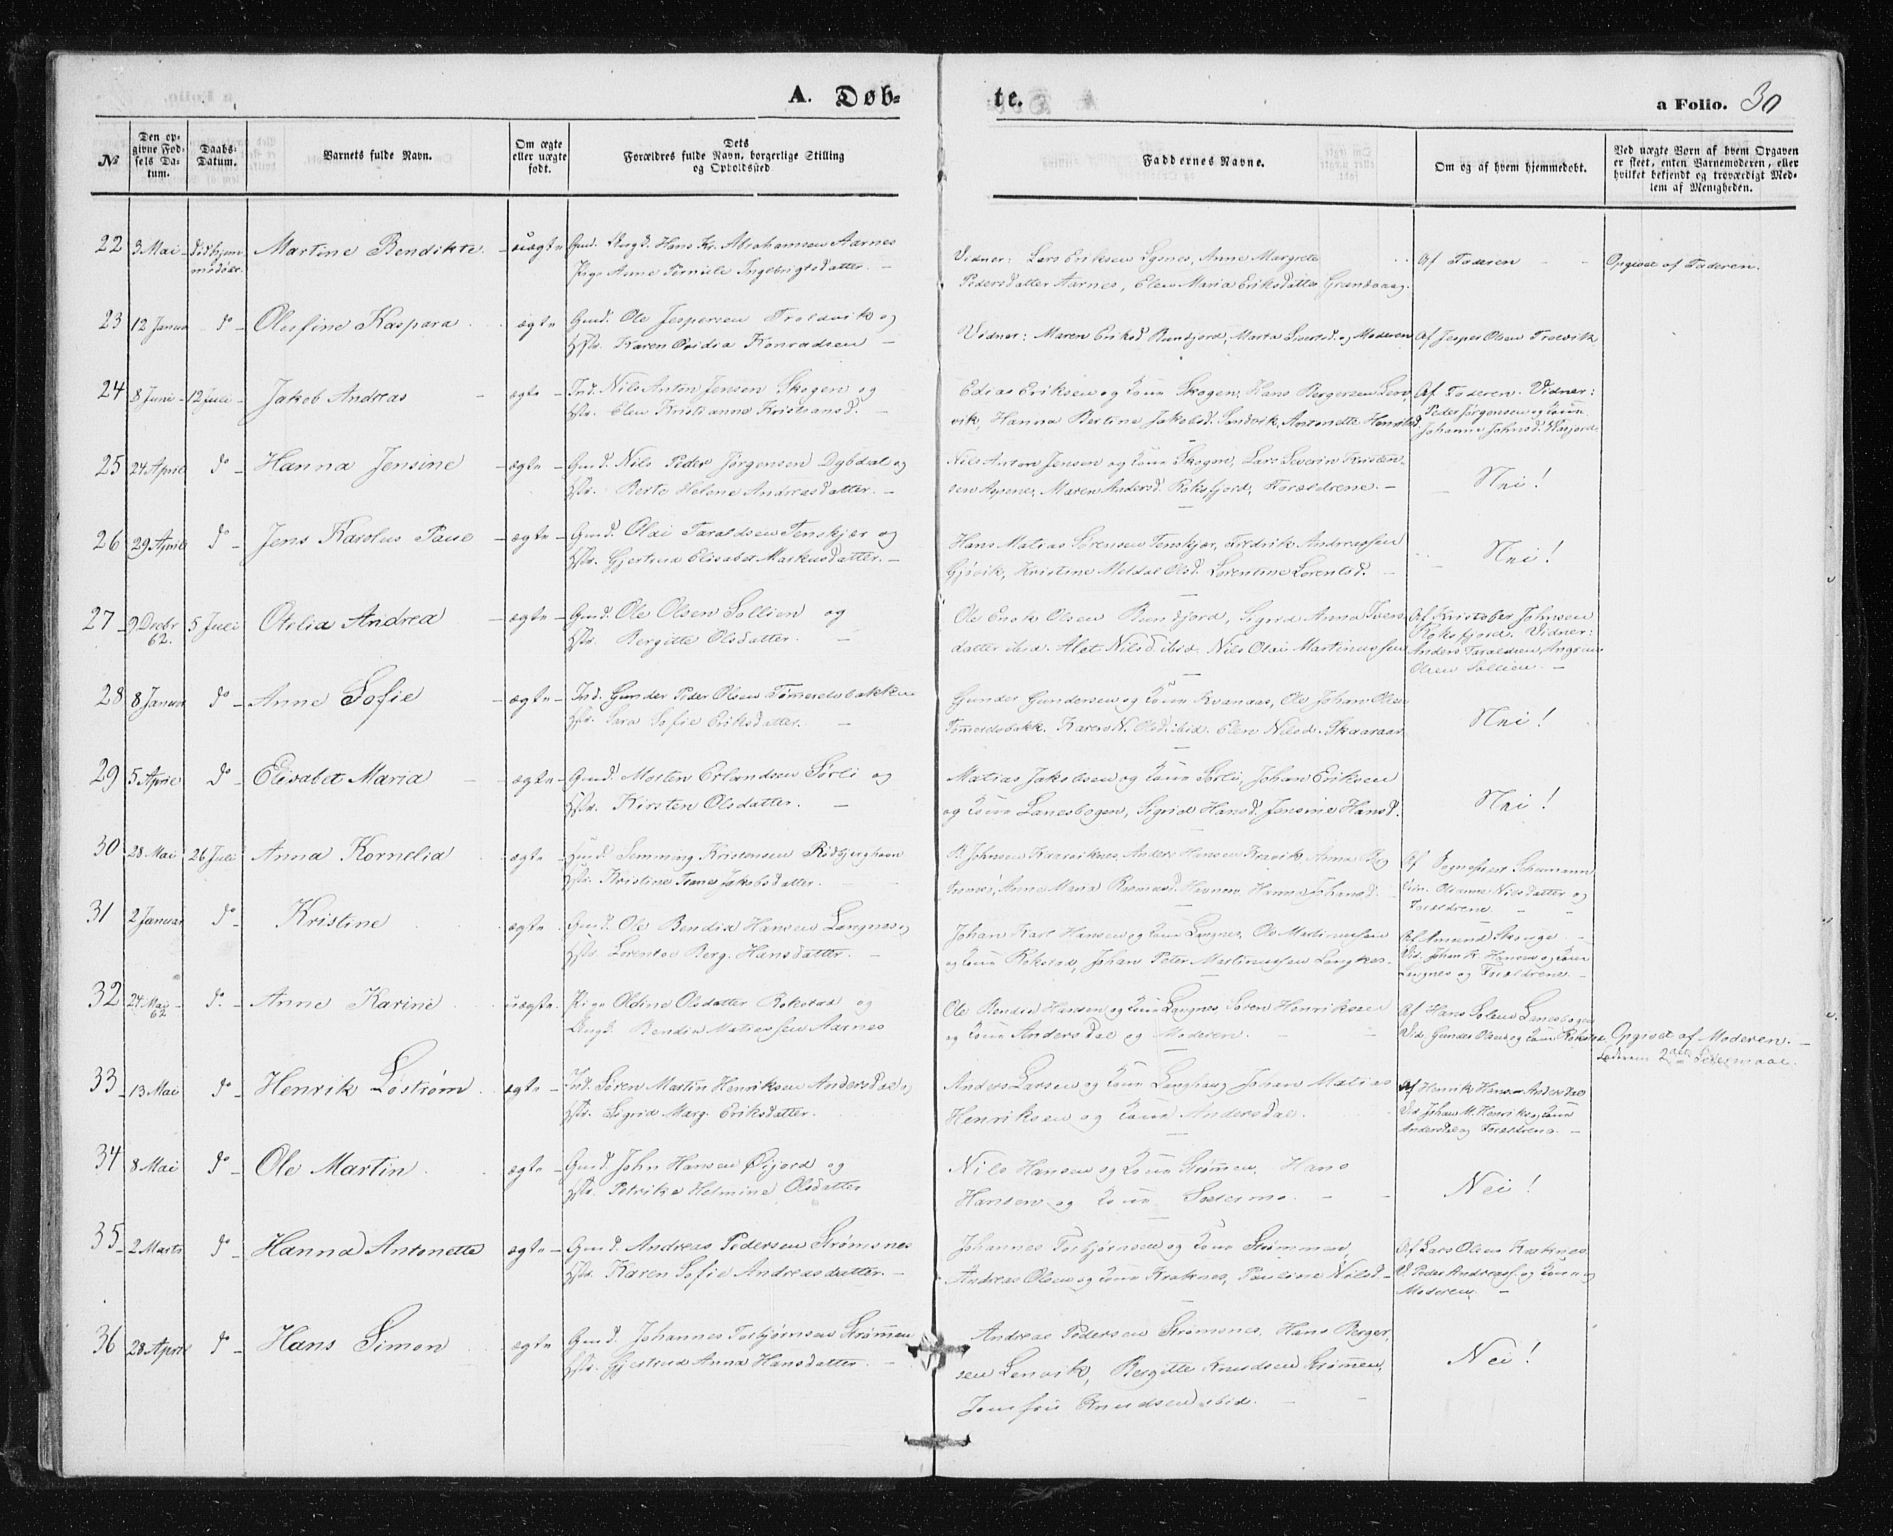 A. Døb-
te.
a Folio. 30
№
Den op-
givne Fød-
sels Da-
tum.
Daabs-
Datum.
Barnets fulde Navn.
Om ægte
eller uægte
født.
Dets
Forældres fulde Navn, borgerlige Stilling
og Opholdssted
Faddernes Navne.
Om og af hvem hjemmedøbt.
Ved uægte Børn af hvem Opgaven
er skeet, enten Barnemoderen, eller
hvilket bekjendt og troværdigt Med-
lem af Menigheden.
22 3 Mai Martine Bendikte uægte Ungd. Hans Kr. Abrahamsen Aarnes
Pige Anne Pernille Ingebrigtsdatter.
Vidner: Lars Eriksen Lysnes, Anne Margrete
Pedersdatter Aarnes, Elen Maria Eriksdatter
Af Faderen
Opgivet af Faderen.
23 12 Januar do Olufine Kaspara ægte Gmd. Ole Jespersen Troldvik og
Hst. Karen Konradsen
Vidner: Maren Eriksd. Marta og Moderen
Af Jesper Olsen
24 8 Juni 12 Juli Jakob Andreas ægte Ind. Nils Anton Jensen Skogen og
Hst. Elen Kristianna Kristiansd.
Edias Eriksen og Kone Skogen, Hans Bergersen Len-
vik, Hanna Bertine Jakobsd. Sandvik, Antonette
Af Faderen. Vidner:
Peder Jørgensen og Kone
Johanna Johnsd.
25 24 April do Hanna Jensine ægte Gmd. Nils Peder Jørgensen Dybdal og
Hst. Berte Helene Andreasdatter.
Nils Anton Jensen og Kone Skogen, Lars Severin Kristen-
sen Maren Andersd. Roksfjord, Forældrene.
Nei!
26 29 April do Jens Karolus ægte Gmd. Olai Taraldsen Tenskjær og
Hst. Gjertrud Elisabet Markusdatter.
Hans Matias Sørensen Tenskjær, Fredrik Andreassen
Gjøvik, Kristine Meldal Olsd. Lorentine Lorentsd.
Nei!
27 9 Decbr 62. 5 Juli Otelia Andrea ægte Gmd. Ole Olsen Sollien og
Hst. Bergitte Olsdatter.
Ole Enok Olsen Sigrid Anna Ivers-
datter ibid. Alet Nilsd. ibid. Nils Olai Martinussen
Af Kristofer Johnsen
Roksfjord. Vidner:
Anders Taraldsen,
Olsen Sollien.
28 8 Januar do Anne Sofie ægte Ind. Gunder Peder Olsen Tømmeråsbakken
Hst. Sara Sofie Eriksdatter.
Gunder Gundersen og Kone Kvanaas, Ole Johan Olsen
Karen N. Olsd. ibid. Elen Nilsd.
Nei!
29 5 April do Elisabet Maria ægte Gmd. Morten Erlandsen Sørli og
Hst. Kirsten Olsdatter.
Matias Jakobsen og Kone Sørli, Johan Eriksen
og Kone Lanesbogen, Sigrid Hansd. Jensine Hansd.
Nei!
30 28 Mai 26 Juli Anna Kornelia ægte Hmd. Kristensen Rødbjerghavn
Hst. Kristine Jakobsdatter.
Johnsen Anders Hansen Anna
Anne Maria Rasmusd. Havnen Hanna Johansd.
Af Sognepræst
Olsdatter og
Forældrene
31 2 Januar do Kristine ægte Gmd. Ole Bendix Hansen Langnes og
Hst. Berg. Hansdatter.
Johan Karl Hansen og Kone Langnes, Ole Martinussen
og Kone Rokstad, Johan Peter Martinussen Langnes.
Af Amund
Vid. Johan K. Hansen og Kone
Langnes og Forældrene.
32 24 Mai 62 do Anne Karine uægte Pige Oldine Olsdatter Rokstad og
Ungd. Bendix Matiassen Aarnes
Ole Bendix Hansen og Kone Langnes, Søren Henriksen
og Kone Andersdal og Moderen.
Af Hans Lanesbogen
Vid. Gunder Olsen og Kone Rokstad
Opgivet af Moderen.
2det Leiermaal.
33 13 Mai do Henrik Løstrøm ægte Ind. Søren Martin Henriksen Andersdal og
Hst. Sigrid Marg. Eriksdatter.
Anders Larsen og Kone Langhaug Johan Matias
Henriksen og Kone Andersdal.
Af Henrik Hansen Andersdal
Vid. Johan M. Henriks. og Kone
Andersdal og Forældrene.
34 8 Mai do Ole Martin ægte Gmd. John Hansen Øijord og
Hst. Petrikke Helmine Olsdatter
Nils Hansen og Kone Strømmen, Hans
Hansen og Kone Sædermo.
Nei!
35 2 Marts do Hanna Antonette ægte Gmd. Andreas Pedersen Strømsnes
Hst. Karen Sofie Andreasdatter.
Johannes Torbjørnsen og Kone Strømmen,
Andreas Olsen og Kone Kraknes, Pauline Nilsd.
Af Lars Olsen Kraknes.
V. Peder Andreass. og Kone og
Moderen.
36 28 April do Hans Simon ægte Gmd. Johannes Torbjørnsen Strømmen
Hst. Gjertrud Anna Hansdatter.
Andreas Pedersen Strømsnes, Hans Berger-
sen Lenvik, Bergitte Knudsen Strømmen,
Josefie Knudsen ibid.
Nei!